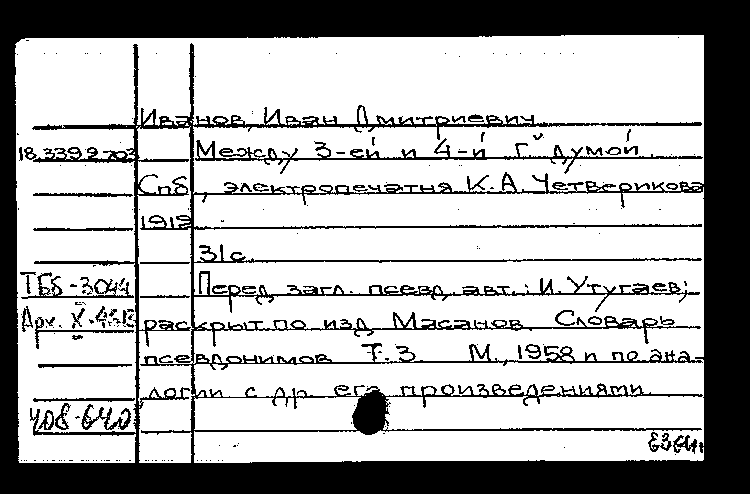 Иванов, Иван Дмитриевич
18.339.2.703 Между 3-ей и 4-й Г. думой.
Спб., электропечатня К.А. Четверикова
1912
31с.
ТБ5-3044 Перед загл. псевд. авт.: И. Утугаев;
Арх. раскрыт по изд. Масанов. Словарь
псевдонимов Т.3. М., 1958 и по ана-
логии с др. его произведениями.
408-640